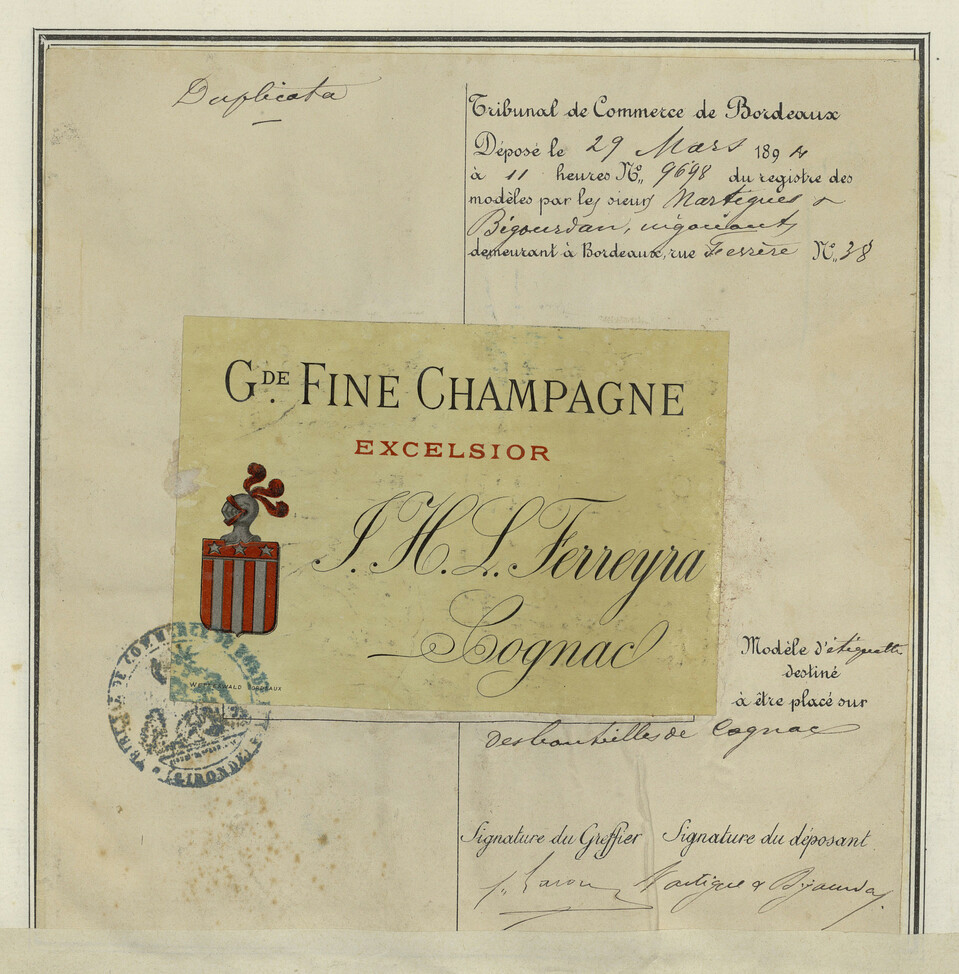 Duplicata
Tribunal de Commerce de Bordeaux
Déposé le 29 Mars 189
à 11 heures No. 9698 du registre des
modèles par les sieurs Martigues &
Bigourdan, négociants
demeurant à Bordeaux, rue Ferrère No. 38
GDE. FINE CHAMPAGNE
EXCELSIOR
J. H. L. Ferreyra
Cognac
WETTERWALD BORDEAUX
TRIBUNAL DE COMMERCE DE BORDEAUX
Modèle d'étiquette
destiné
à être placé sur
des bouteilles de Cognac
Signature du Greffier Signature du déposant
Martigue & Bigourdan